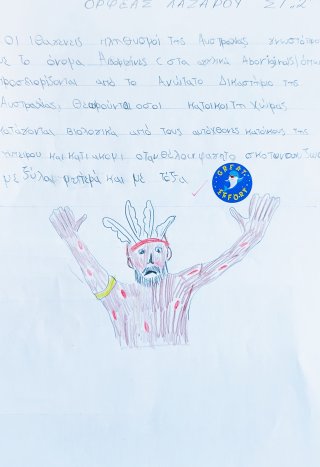 ΟΡΦΕΑΣ ΛΑΖΑΡΟΥ ΣΤ'2
Οι Ιθαγενείς πληθυσμοί της Αυστραλίας γνωστότεροι
με το όνομα Αβορίγινες (στα αγγλικά Aborigines) όπως
προσδιορίζονται από το Ανώτατο Δικαστήριο της
Αυστραλίας, θεωρούνται όσοι κάτοικοι της χώρας
κατάγονται βιολογικά από τους απόγθονες κατοίκους της
ηπείρου και κάτι ακομι όταν θέλουν φαγητο σκοτώνουν ζώα
με ξύλα μυτερά και με τόξα
GREAT EFFORT